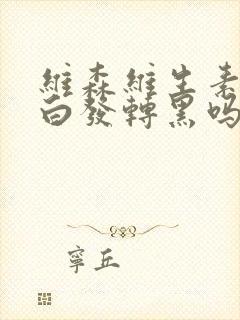 維森維生素
白發轉黑嗎
寧丘